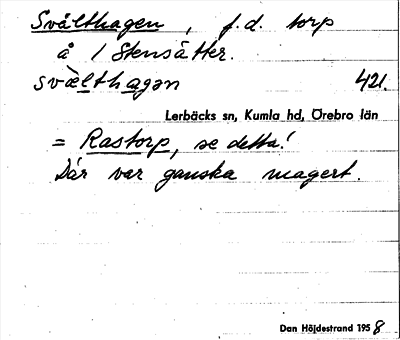 Svälthagen, f.d. torp
å 1 Stensätter.
svè̀lthagən 421.
Lerbäcks sn, Kumla hd, Örebro län
= Rastorp, se detta!
Där var ganska magert.
Dan Höjdestrand 1958